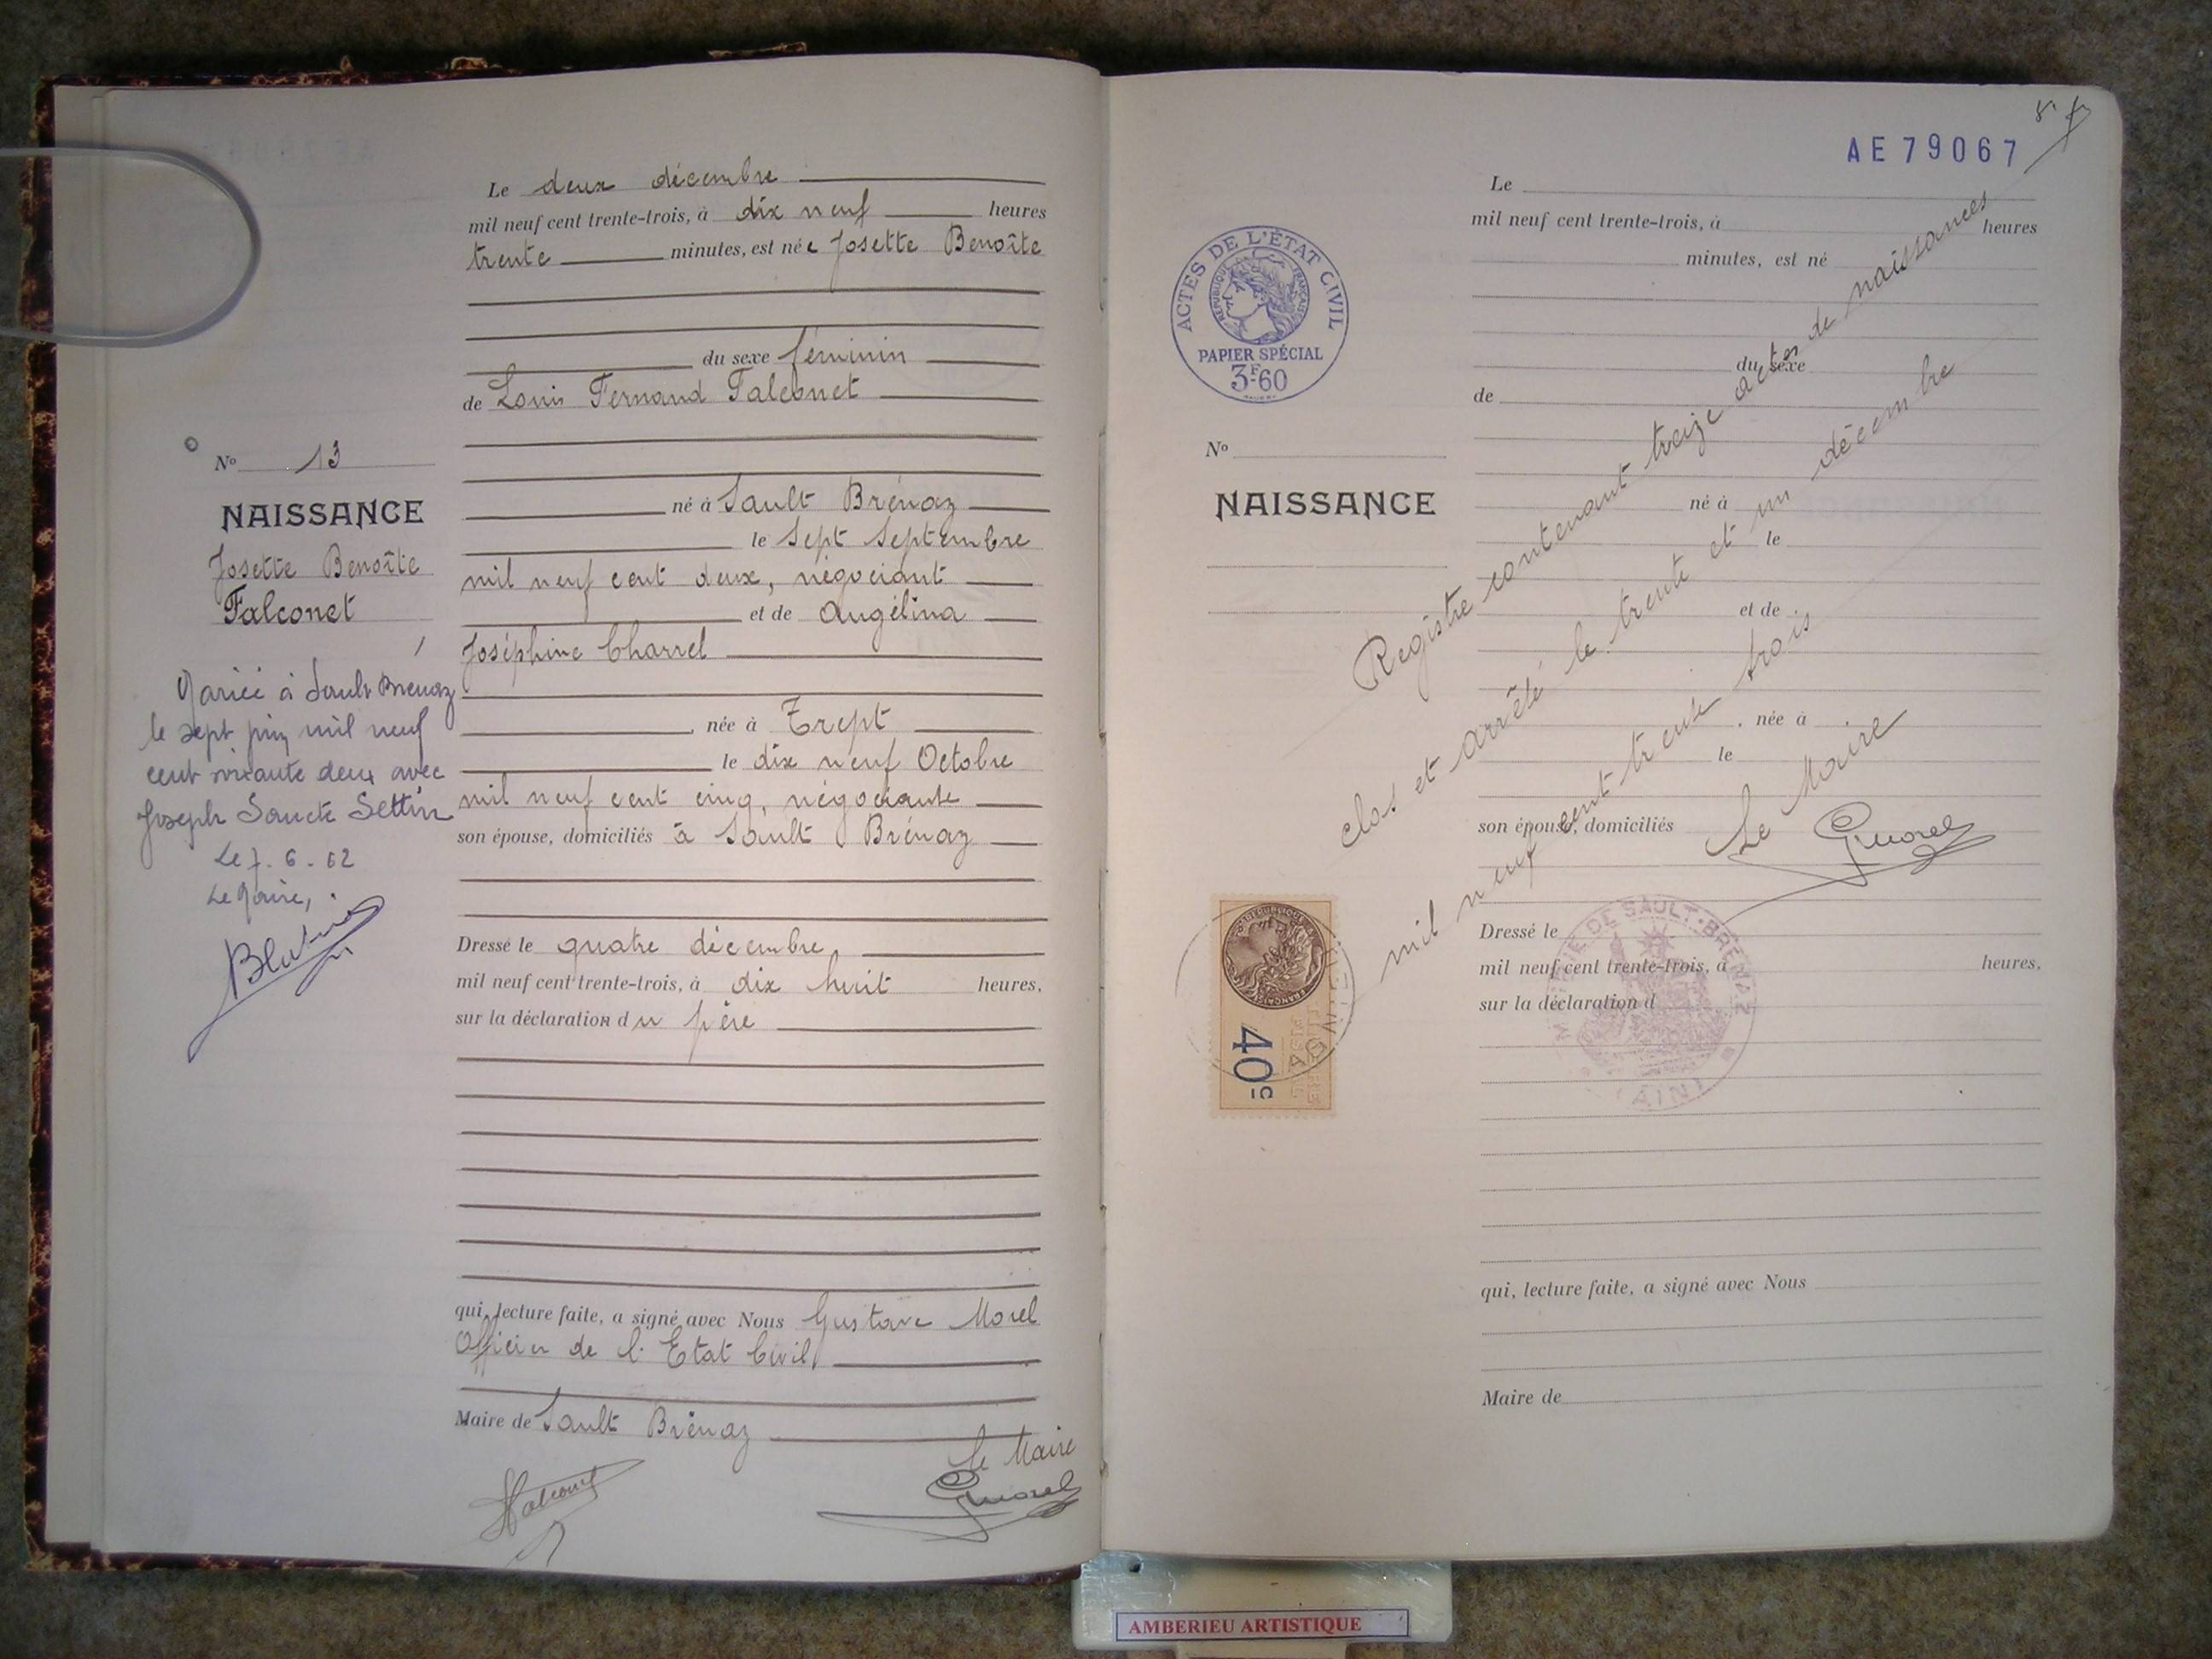 Le deux décembre
mil neuf cent trente-trois, à dix neuf heures
trente minutes, est née Josette Benoîte
du sexe féminin
de Louis Fernand Falconet
né à Sault Brénaz
le sept Septembre
mil neuf cent deux, négociant
et de Angélina
Joséphine Charrel
née à Trept
le dix neuf Octobre
mil neuf cent cinq, négociante
son épouse, domiciliés à Sault Brénaz
Dressé le quatre décembre,
mil neuf cent trente-trois, à dix huit heures,
sur la déclaration du père
qui, lecture faite, a signé avec Nous Gustave Morel
Officier de l'Etat Civil
Maire de Sault Brénaz
Le Maire
GMorel
No 13
NAISSANCE
Josette Benoîte
Falconet
Mariée à Sault Brenaz
le sept juin mil neuf
cent soixante deux avec
Joseph Sancte Settin
Le 7.6.62
Le Maire,
AE79067
ACTES DE L'ÉTAT CIVIL
RÉPUBLIQUE FRANÇAISE
PAPIER SPÉCIAL
3F60
No
NAISSANCE
Le
mil neuf cent trente-trois, à heures
minutes, est né
du sexe
de
né à
le
et de
, née à
le
son épouse, domiciliés
Dressé le
mil neuf cent trente-trois, à heures,
sur la déclaration d
qui, lecture faite, a signé avec Nous
Maire de
Registre contenant treize actes de naissances
clos et arrêté le trente et un décembre
mil neuf cent trente trois
Le Maire
GMorel
MAIRIE DE SAULT-BRÉNAZ
(AIN)
40c
AMBERIEU ARTISTIQUE